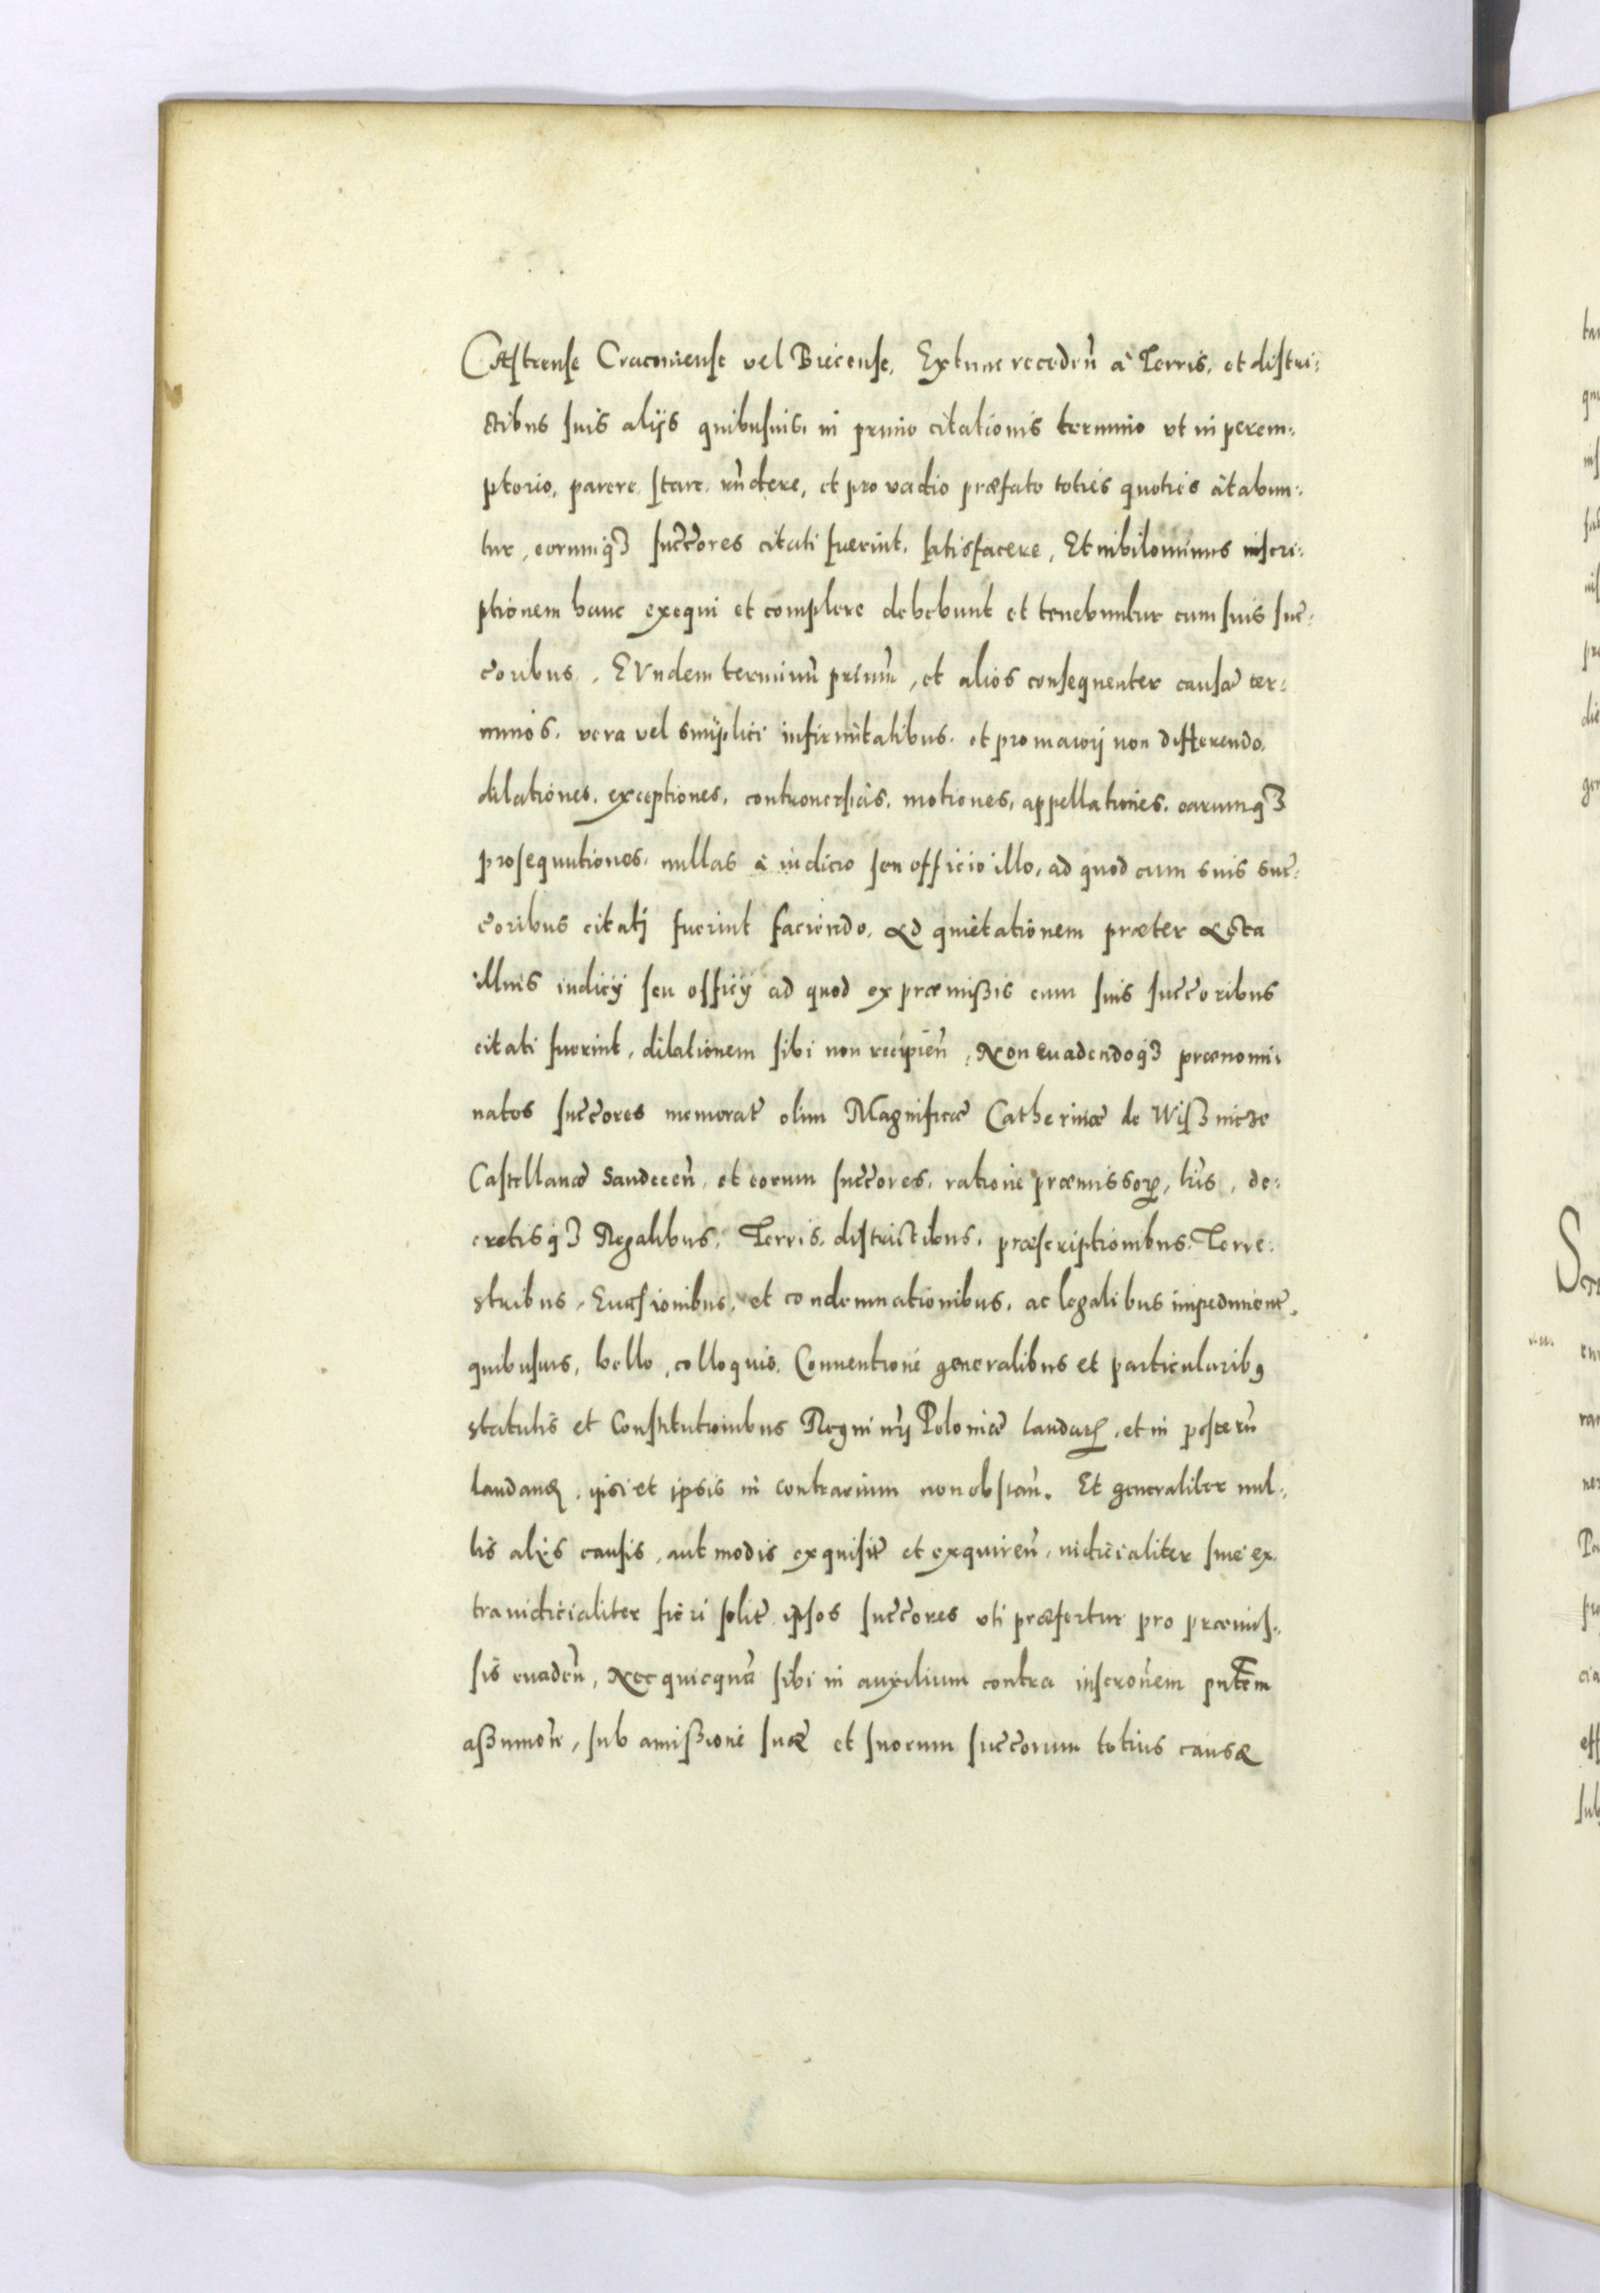 CAstrense Cracoviense vel Biecense, Extunc receden̄ à Terris, et distri:
ctibus suis alijs quibusuis, in primo citationis termino ut in perem:
ptorio, parere stare, rn̄dere, et pro vadio præfato toties quoties citabun:
tur, eorumq3 succ̄ores citati fuerint, satisfacere, Et nihilominus inscri:
ptionem hanc exequi et complere debebunt et tenebuntur cum suis suc̄:
c̄oribus, EUndem terminū primū, et alios consequenter causæ ter:
minos, vera vel simplici infirmitatibus, et pro maiori non differendo,
dilationes, exceptiones, controuersias, motiones, appellationes, earumq3
prosequutiones, nullas à iudicio seu officio illo, ad quod cum suis suc̄:
c̄oribus citatj fuerint faciendo, Ad quietationem præter Acta
illius iudicij seu officij ad quod ex præmißis cum suis succ̄oribus
citati fuerint, dilationem sibi non recipien̄, Non euadendoq3 prænomi:
natos succ̄ores memorat̄ olim Magnificæ Catherinæ de Wißnicze
Castellanæ Sandecen̄, et eorum succ̄ores, ratione præmissorꝝ, lr̄is, de:
cretisq3 Regalibus, Terris, districtibus, præscriptionibus Terre:
stribus, Euasionibus, et condemnationibus, ac legalibus impediment̄,
quibusuis, bello, colloquis, Conuentione generalibus et particularibꝰ
statutis et Constitutionibus Regni nr̄j Poloniæ laudatꝭ, et in posterū
laudandꝭ, ipsi et ipsis in contrarium non obstan̄. Et generaliter nul:
lis alijs causis, aut modis exquisit̄ et exquiren̄, iudicialiter siue ex
traiudicialiter fieri solit̄ ipsos succ̄ores uti præfertur pro præmis:
sis euaden̄, Nec quicquā sibi in auxilium contra inscrōnem pn̄tem
aßumen̄, sub amißione suæ et suorum succ̄orum totius causæ